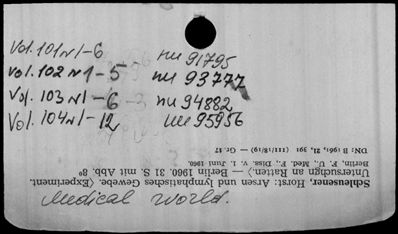 Vol. 101 N1-6 nu 91795
Vol. 102 N1-5 nu 93777
Vol. 103 N1-6 nu 94882
Vol. 104 N1-12 nu 95956
Medical World.
Schleusener, Horst: Arsen und lymphatisches Gewebe. (Experiment.
Untersuchgn an Ratten.) — Berlin 1960. 31 S. mit Abb. 8°
Berlin, F. U., Med. F., Diss. v. 1. Juni 1960.
DN: B 1961, 21, 391 (111/18/19) — Gr. 17